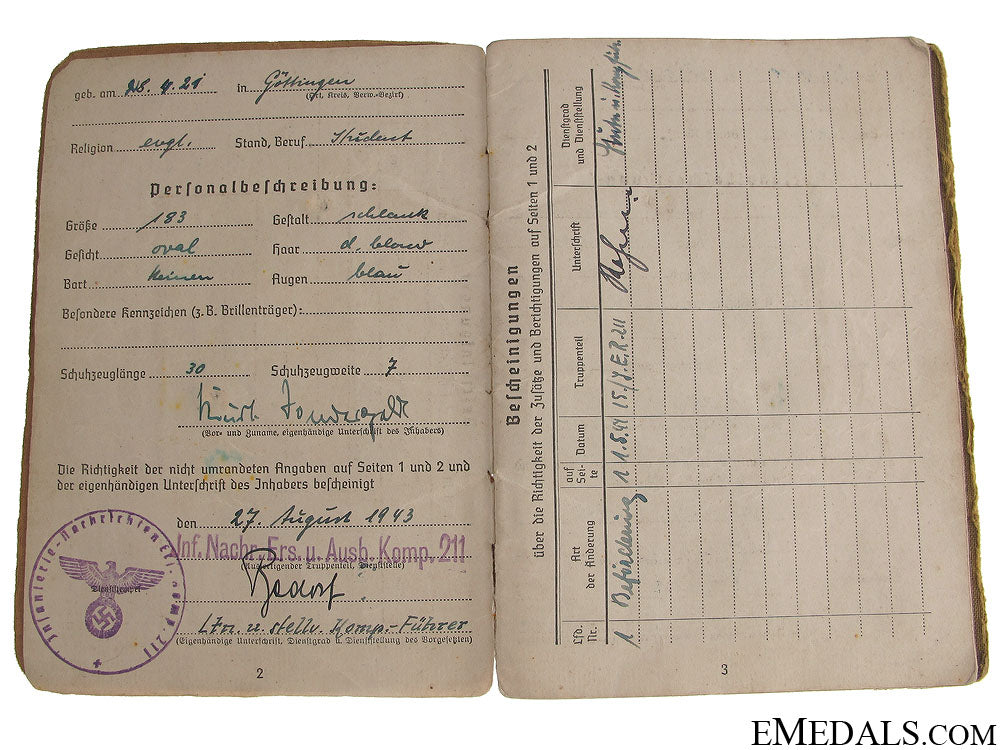 geb. am 28. 9. 21 in Göttingen
(Ort, Kreis, Verw.-Bezirk)
Religion evgl. Stand, Beruf Student
Personalbeschreibung:
Größe 183 Gestalt schlank
Gesicht oval Haar d. blond
Bart keinen Augen blau
Besondere Kennzeichen (z. B. Brillenträger):
Schuhzeuglänge 30 Schuhzeugweite 7
Kurt
(Vor- und Zuname, eigenhändige Unterschrift des Inhabers)
Die Richtigkeit der nicht umrandeten Angaben auf Seiten 1 und 2 und
der eigenhändigen Unterschrift des Inhabers bescheinigt
den 27. August 1943
Inf. Nachr. Ers. u. Ausb. Komp. 211
(Ausfertigender Truppenteil, Dienststelle)
Ltn. u. stellv. Komp.-Führer
(Eigenhändige Unterschrift, Dienstgrad u. Dienststellung des Vorgesetzten)
Dienststempel
2
Bescheinigungen
über die Richtigkeit der Zusätze und Berichtigungen auf Seiten 1 und 2
Lfd. Nr.
Art der Änderung
auf Sei- te
Datum
Truppenteil
Unterschrift
Dienstgrad und Dienststellung
1 Beförderung 1
3
EMEDALS.COM